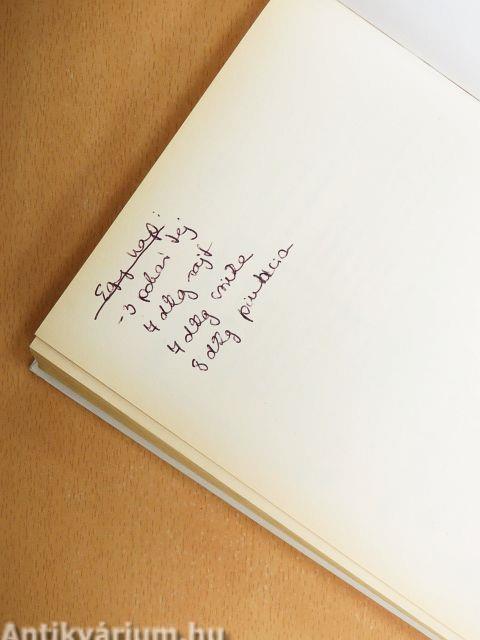 Egy nap:
-3 pohár tej
4 dkg sajt
4 dkg csirke
8 dkg
Antikvárium.hu